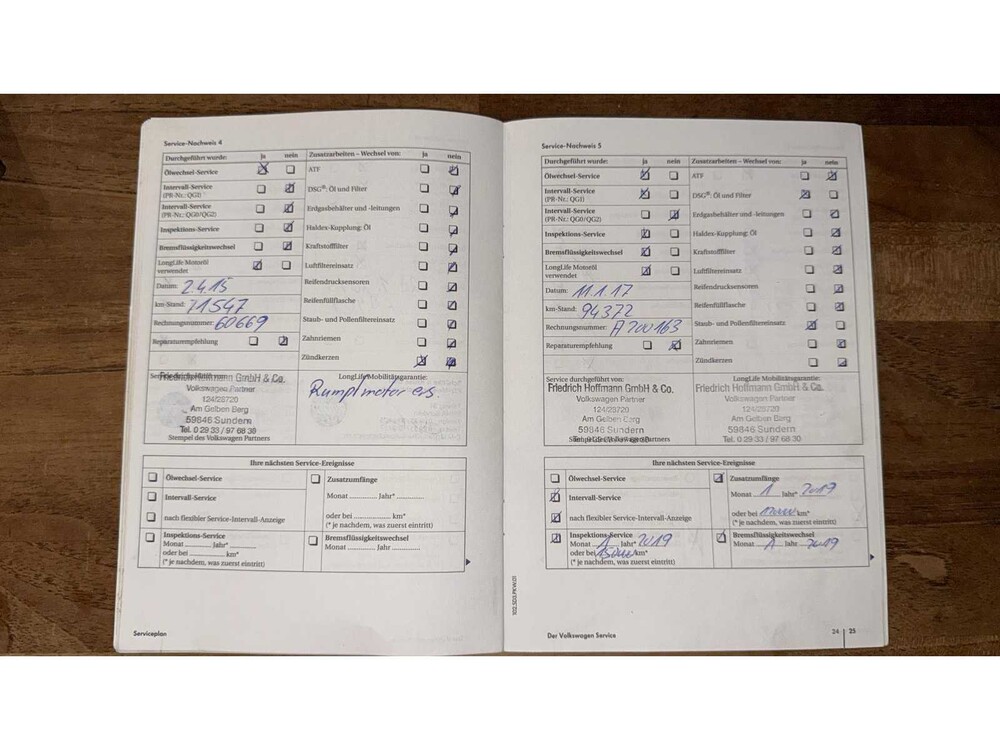 Service-Nachweis 4
Durchgeführt wurde: ja nein Zusatzarbeiten – Wechsel von: ja nein
Ölwechsel-Service
ATF
Intervall-Service
(PR-Nr.: QG1)
DSG®: Öl und Filter
Intervall-Service
(PR-Nr.: QG0/QG2)
Erdgasbehälter und -leitungen
Inspektions-Service
Haldex-Kupplung: Öl
Bremsflüssigkeitswechsel
Kraftstofffilter
LongLife Motoröl
verwendet
Luftfiltereinsatz
Datum: 2.4.15
Reifendrucksensoren
km-Stand: 71547
Reifenfüllflasche
Rechnungsnummer: 60669
Staub- und Pollenfiltereinsatz
Reparaturempfehlung
Zahnriemen
Zündkerzen
Friedrich Hoffmann GmbH & Co.
Volkswagen Partner
124/28720
Am Gelben Berg
59846 Sundern
Tel. 0 29 33 / 97 68 30
Stempel des Volkswagen Partners
LongLife Mobilitätsgarantie:
Ihre nächsten Service-Ereignisse
Ölwechsel-Service
Intervall-Service
nach flexibler Service-Intervall-Anzeige
Inspektions-Service
Monat Jahr*
oder bei km*
(* je nachdem, was zuerst eintritt)
Zusatzumfänge
Monat Jahr*
oder bei km*
(* je nachdem, was zuerst eintritt)
Bremsflüssigkeitswechsel
Monat Jahr
Serviceplan
Service-Nachweis 5
Durchgeführt wurde: ja nein Zusatzarbeiten – Wechsel von: ja nein
Ölwechsel-Service
ATF
Intervall-Service
(PR-Nr.: QG1)
DSG®: Öl und Filter
Intervall-Service
(PR-Nr.: QG0/QG2)
Erdgasbehälter und -leitungen
Inspektions-Service
Haldex-Kupplung: Öl
Bremsflüssigkeitswechsel
Kraftstofffilter
LongLife Motoröl
verwendet
Luftfiltereinsatz
Datum: 11.1.17
Reifendrucksensoren
km-Stand: 94372
Reifenfüllflasche
Rechnungsnummer: A700163
Staub- und Pollenfiltereinsatz
Reparaturempfehlung
Zahnriemen
Zündkerzen
Service durchgeführt von:
Friedrich Hoffmann GmbH & Co.
Volkswagen Partner
124/28720
Am Gelben Berg
59846 Sundern
Stempel des Volkswagen Partners
LongLife Mobilitätsgarantie:
Friedrich Hoffmann GmbH & Co.
Volkswagen Partner
124/28720
Am Gelben Berg
59846 Sundern
Tel. 0 29 33 / 97 68 30
Ihre nächsten Service-Ereignisse
Ölwechsel-Service
Intervall-Service
nach flexibler Service-Intervall-Anzeige
Inspektions-Service
Monat 1 Jahr* 2019
oder bei km*
(* je nachdem, was zuerst eintritt)
Zusatzumfänge
Monat 1 Jahr* 2019
oder bei km*
(* je nachdem, was zuerst eintritt)
Bremsflüssigkeitswechsel
Monat 1 Jahr 2019
102.5D3.PKW.01
Der Volkswagen Service
24 25